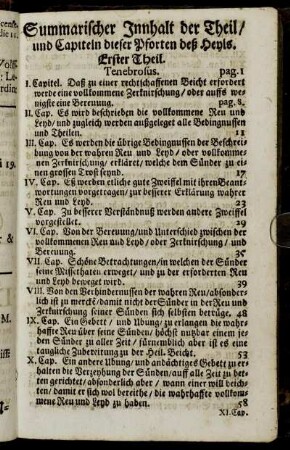 Summarischer Innhalt der Theil/
und Capiteln dieser Pforten deß Heyls.
Erster Theil.
Tenebrosus. pag. 1
I. Capitel. Daß zu einer rechtschaffenen Beicht erfordert
werde eine vollkommene Zerknirschung/ oder auffs we-
nigste eine Bereuung. pag. 8.
II. Cap. Es wird beschrieben die vollkommene Reu und
Leyd/ und zugleich werden außgelegt alle Bedingnussen
und Theilen. 11
III. Cap. Es werden die übrige Bedingnussen der Beschrei-
bung von der wahren Reu und Leyd/ oder vollkomme-
nen Zerknirschung/ erkläret/ welche dem Sünder zu ei-
nen grossen Trost seynd. 17
IV. Cap. Es werden etliche gute Zweiffel mit ihrem Beant-
wortungen vorgetragen/ zur besserer Erklärung wahrer
Reu und Leyd. 23
V. Cap. Zu besserer Verständnuß werden andere Zweiffel
vorgestellet. 29
VI. Cap. Von der Bereuung/ und Unterschied zwischen der
vollkommenen Reu und Leyd/ oder Zerknirschung/ und
Bereuung. 35
VII. Cap. Schöne Betrachtungen/ in welchen der Sünder
seine Missethaten erweget/ und zu der erforderten Reu
und Leyd beweget wird. 39
VIII. Von den Verhindernussen der wahren Reu/ absonder-
lich ist zu mercke/ damit nicht der Sünder in der Reu und
Zerknirschung seiner Sünden sich selbsten betrüge. 48
IX. Cap. Ein Gebett/ und Ubung/ zu erlangen die wahr-
haffte Reu über seine Sünden/ höchst nutzbar einem je-
den Sünder zu aller Zeit/ fürnemblich aber ist es eine
taugliche Zubereitung zu der Heil. Beicht. 53
X. Cap. Ein andere Ubung/ und andächtiges Gebett zu er-
halten die Verzeyhung der Sünden/ auff alle Zeit zu bet-
ten gerichtet/ absonderlich aber/ wann einer will beich-
ten/ damit er sich wol bereithe/ die wahrhaffte vollkom-
mene Reu und Leyd zu haben. 58
XI. Cap.